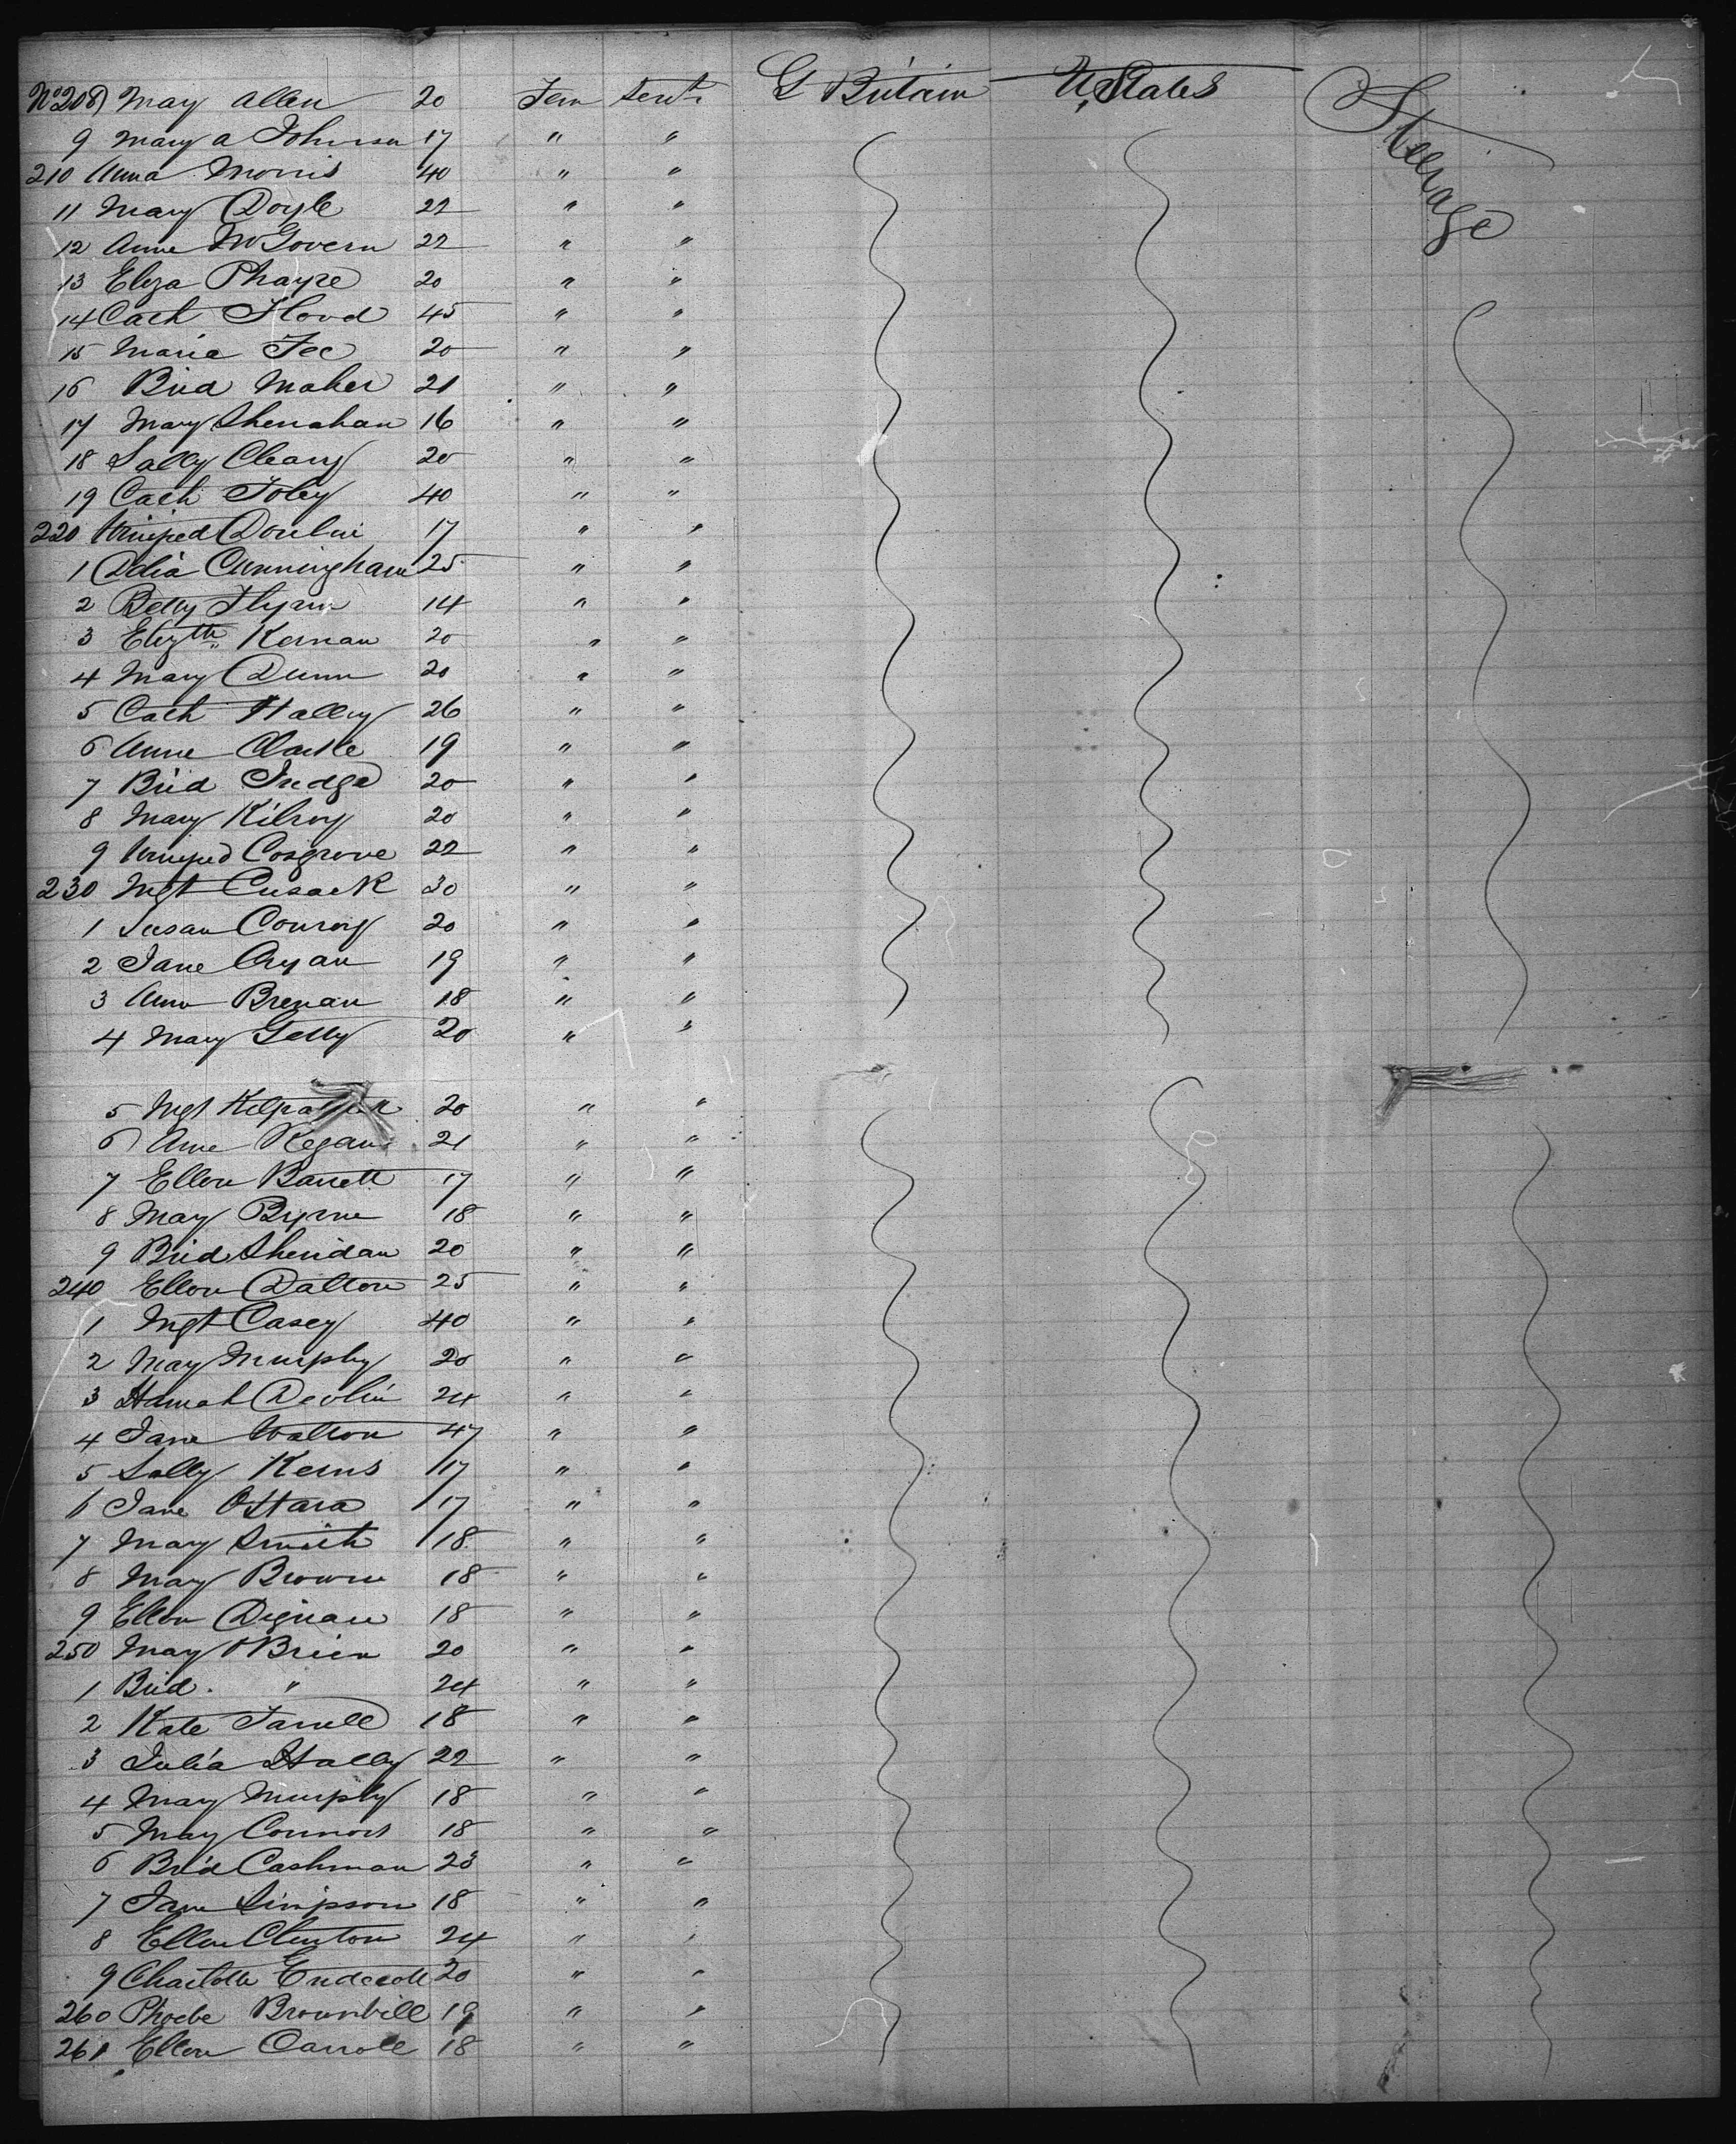 No 208 May Allen 20 Fem Servt G Britain U, States Steerage
9 Mary a Johnson 17 " "
210 Anna Morris 40 " "
11 Mary Doyle 22 " "
12 Anne McGovern 22 " "
13 Eliza Phayre 20 " "
14 Cath Flood 45 " "
15 Maria Fee 20 " "
16 Brid Maher 21 " "
17 Mary Shenahan 16 " "
18 Sally Cleary 20 " "
19 Cath Foley 40 " "
220 Winifred 17 " "
1 Delia Cunningham 25 " "
2 Betty Flynn 14 " "
3 Elizth Kernan 20 " "
4 Mary Dunn 20 " "
5 Cath Halley 26 " "
6 Anne Clarke 19 " "
7 Brid Judge 20 " "
8 Mary Kilroy 20 " "
9 Winifred Cosgrove 22 " "
230 Mgt Cusack 30 " "
1 Susan Conroy 20 " "
2 Jane Cryan 19 " "
3 Ann Brenan 18 " "
4 Mary Gelly 20 " "
5 Mgt Kilpatrick 20 " "
6 Anne Regan 21 " "
7 Ellen Barrett 17 " "
8 May Byrne 18 " "
9 Brid Sheridan 20 " "
240 Ellen Dalton 25 " "
1 Mgt Casey 40 " "
2 May Murphy 20 " "
3 Hannah Devlin 24 " "
4 Jane Walton 47 " "
5 Sally Kerns 17 " "
6 Jane OHara 17 " "
7 Mary Smith 18 " "
8 May Browne 18 " "
9 Ellen Dignan 18 " "
250 May OBrien 20 " "
1 Brid " 24 " "
2 Kate Farrell 18 " "
3 Julia Hally 22 " "
4 May Murphy 18 " "
5 May Connors 18 " "
6 Brid Cashman 23 " "
7 Jane Simpson 18 " "
8 Ellen Clinton 24 " "
9 Charlotte Endecott 20 " "
260 Phoebe Brownbill 19 " "
261 Ellen Carroll 18 " "